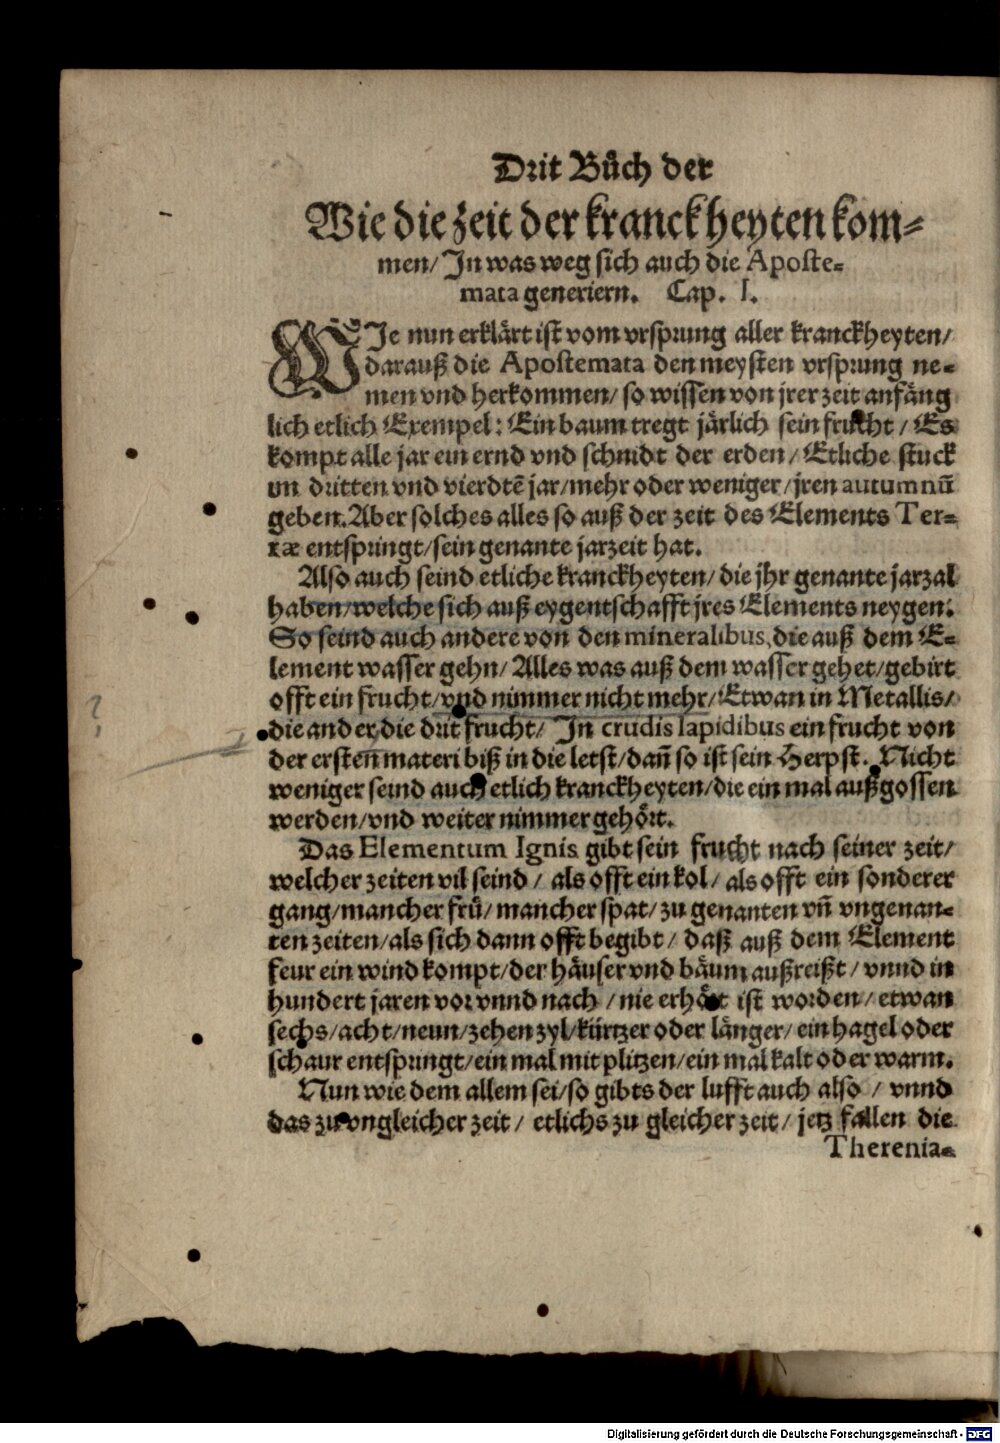 Drit Bůch der
Wie die zeit der kranckheyten kom⸗
men/ In was weg sich auch die Aposte⸗
mata generiern. Cap. I.
WIe nun erklärt ist vom vrsprung aller kranckheyten/
darauß die Apostemata den meysten vrsprung ne⸗
men vnd herkommen/ so wissen von jrer zeit anfäng
lich etlich Exempel: Ein baum tregt järlich sein frucht / Es
kompt alle jar ein ernd vnd schnidt der erden/ Etliche stuck
im dritten vnd vierdtē jar/mehr oder weniger/jren autumnū
geben. Aber solches alles so auß der zeit des Elements Ter⸗
ræ entspringt/sein genante jarzeit hat.
Also auch seind etliche kranckheyten/ die jhr genante jarzal
haben/welche sich auß eygentschafft jres Elements neygen:
So seind auch andere von den mineralibus, die auß dem E⸗
lement wasser gehn/ Alles was auß dem wasser gehet/gebirt
offt ein frucht/vnd nimmer nicht mehr/ Etwan in Metallis/
die ander, die drit frucht/ In crudis lapidibus ein frucht von
der ersten materi biß in die letst/dañ so ist sein Herpst. Nicht
weniger seind auch etlich kranckheyten/die ein mal außgossen
werden/vnd weiter nimmer gehört.
Das Elementum Ignis gibt sein frucht nach seiner zeit/
welcher zeiten vil seind / als offt ein kol/ als offt ein sonderer
gang/mancher frü/ mancher spat/ zu genanten vñ vngenan⸗
ten zeiten/als sich dann offt begibt/ daß auß dem Element
feur ein wind kompt/der häuser vnd bäum außreißt/ vnnd in
hundert jaren vor vnnd nach / nie erhört ist worden/ etwan
sechs/acht/neun/zehen zyl/kürtzer oder länger/ ein hagel oder
schaur entspringt/ein mal mit plitzen/ein mal kalt oder warm.
Nun wie dem allem sei/so gibts der lufft auch also / vnnd
das zu vngleicher zeit/ etlichs zu gleicher zeit/ jetz fallen die
Therenia⸗
?
Digitalisierung gefördert durch die Deutsche Forschungsgemeinschaft - DFG